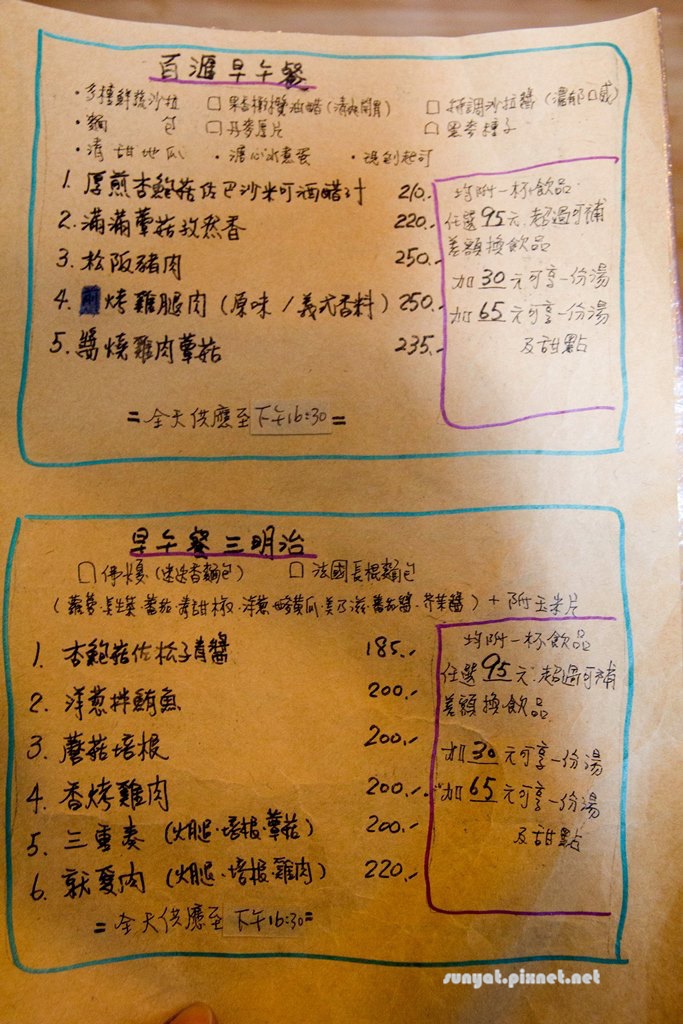 百滙早午餐
・多種鮮蔬沙拉 □ 果香橄欖油醋(清爽開胃) □ 特調沙拉醬(濃郁口感)
・麵包 □ 丹麥厚片 □ 黑麥種子
・清甜地瓜 ・溏心水煮蛋 ・
1. 厚煎杏鮑菇佐巴沙米可酒醋汁 210.-
2. 滿滿蕈菇孜然香 220.-
3. 松阪豬肉 250.-
4. 煎烤雞腿肉(原味/義式香料) 250.-
5. 醬燒雞肉蕈菇 235.-
均附一杯飲品
任選95元.超過可補
差額換飲品
加30元可享一份湯
加65元可享一份湯
及甜點
=全天供應至下午16:30=
早午餐三明治
□ 佛卡夏(迷迭香麵包) □ 法國長棍麵包
(蘿蔓.長生菜.蕃茄.青甜椒.洋蔥.酸黃瓜.美乃滋.蕃茄醬.芥茉醬)+附玉米片
1. 杏鮑菇佐松子青醬 185.-
2. 洋蔥拌鮪魚 200.-
3. 蘑菇培根 200.-
4. 香烤雞肉 200.-
5. 三重奏(火腿.培根.蕈菇) 200.-
6. 就愛肉(火腿.培根.雞肉) 220.-
均附一杯飲品
任選95元.超過可補
差額換飲品
加30元可享一份湯
加65元可享一份湯
及甜點
=全天供應至下午16:30=
sunyat.pixnet.net